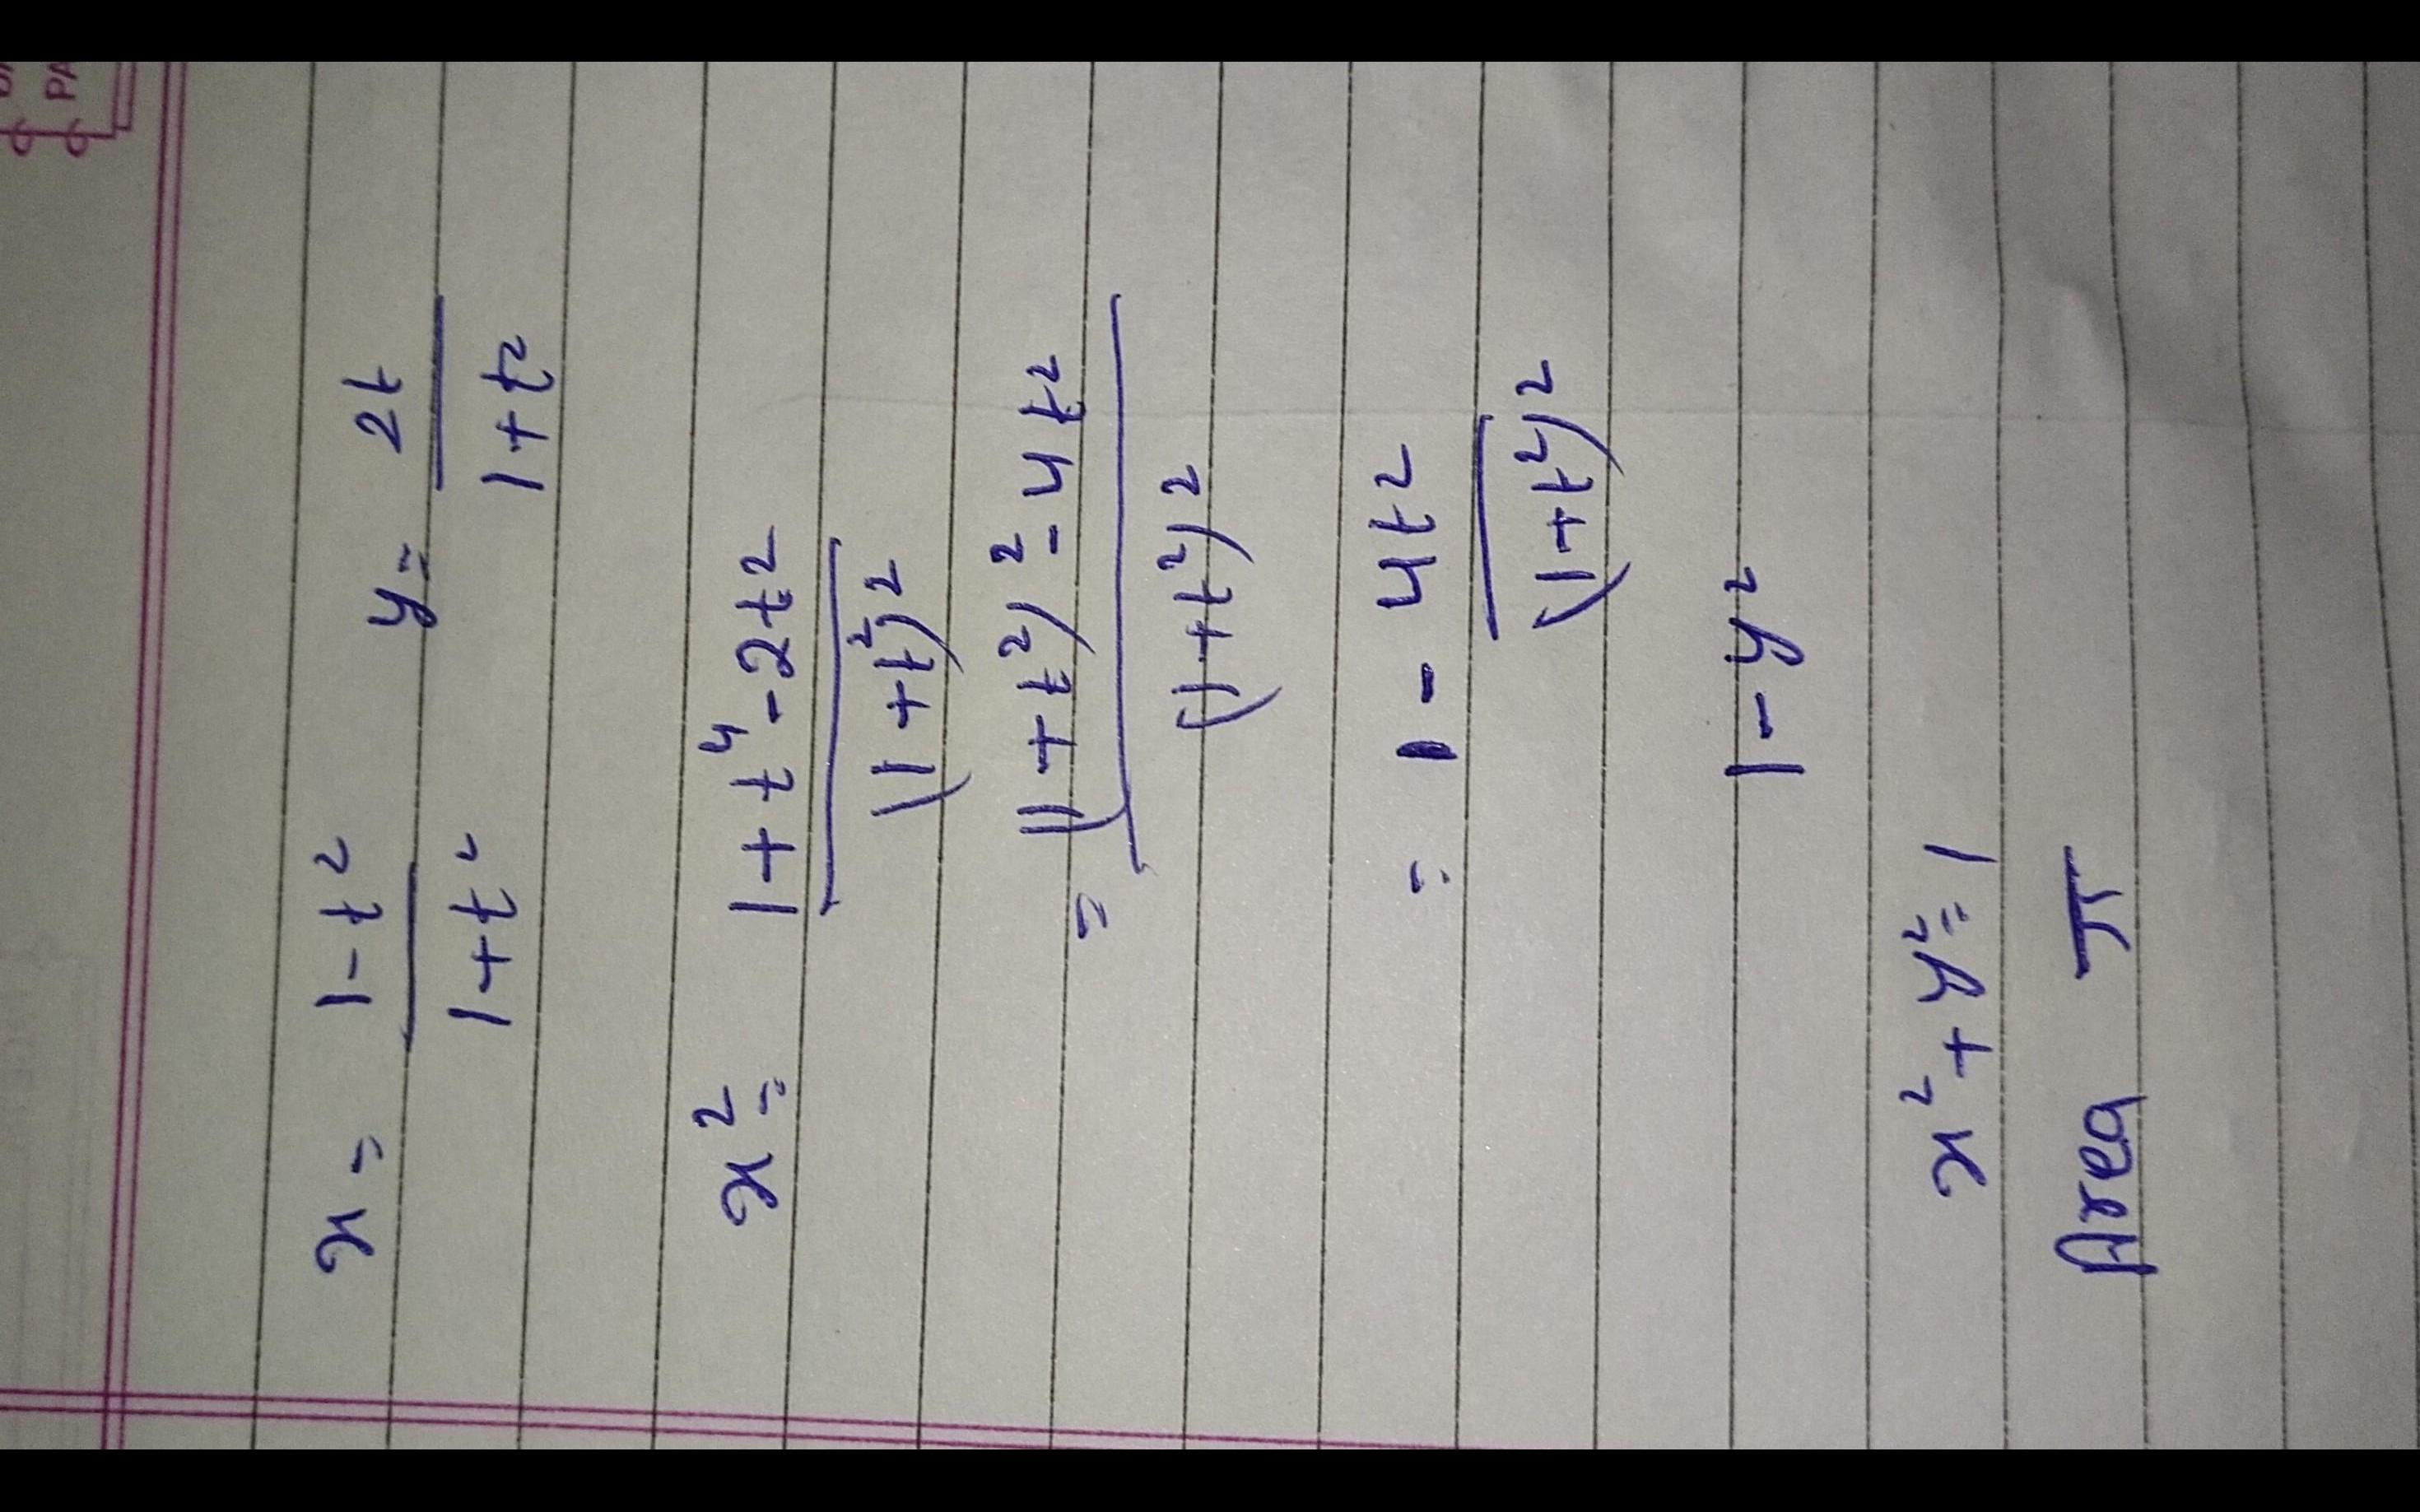 x = 1-t² / 1+t²    y = 2t / 1+t²
x² = 1+t⁴-2t² / (1+t²)²
= (1+t²)²-4t² / (1+t²)²
= 1 - 4t² / (1+t²)²
1-y²
x²+y²=1
Area π